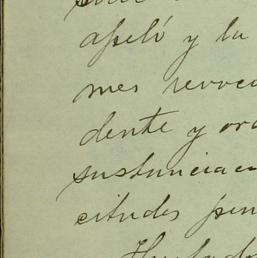 apeló y la
mes revoca
dente y ord
sustanciaci
citudes pen